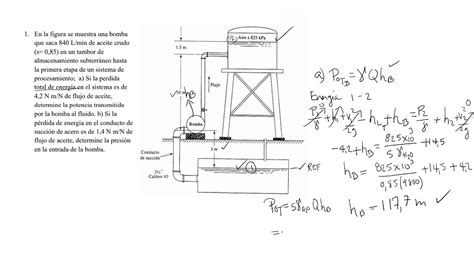 1. En la figura se muestra una bomba
que saca 840 L/min de aceite crudo
(s= 0,85) en un tambor de
almacenamiento subterráneo hasta
la primera etapa de un sistema de
procesamiento; a) Si la perdida
total de energía en el sistema es de
4,2 N m/N de flujo de aceite,
determine la potencia transmitida
por la bomba al fluido. b) Si la
pérdida de energía en el conducto de
succión de acero es de 1,4 N m/N de
flujo de aceite, determine la presión
en la entrada de la bomba.
Aire a 825 kPa
1.5 m
Flujo
hB
Bomba
3 m
Conducto
de succión
2½"
Calibre 40
REF
a) PotB = γ Q hB
Energía 1-2
P1/γ + h1 + V1²/2g - h2 + hB = P2/γ + h2 + V2²/2g
-4,2 + hB = 825x10³/S γH2O + 14,5
hB = 825x10³/0,85(9800) + 14,5 + 4,2
Pot = SγH2O QhB hB = 117,7 m ✓
=